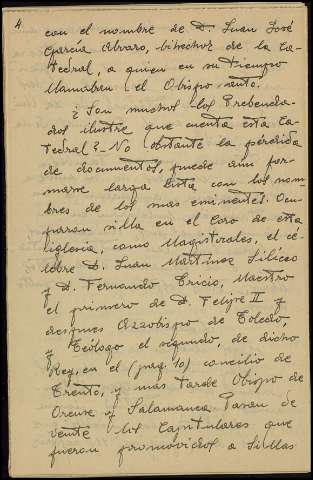 4.
con el nombre de D. Juan José
García Alvaro, bihechor de la Ca-
tedral, a quien en su tiempo
llamaban el Obispo santo.
¿Son muchos los Prebenda-
dos ilustre que cuenta esta Ca-
tedral?-No obstante la pérdida
de documentos, puede aun for-
marse larga lista con los nom-
bres de los mas eminentes. Ocu-
paron silla en el Coro de esta
iglesia, como Magistrales, el cé-
lebre D. Juan Martínez Silíceo
y D. Fernando Tricio, Maestro
el primero de D. Felipe II y
despues Arzobispo de Toledo,
y Teólogo el segundo, de dicho
Rey, en el (pag. 10) concilio de
Trento, y mas tarde Obispo de
Orense y Salamanca. Pasan de
veinte los Capitulares que
fueron promovidos a Sillas